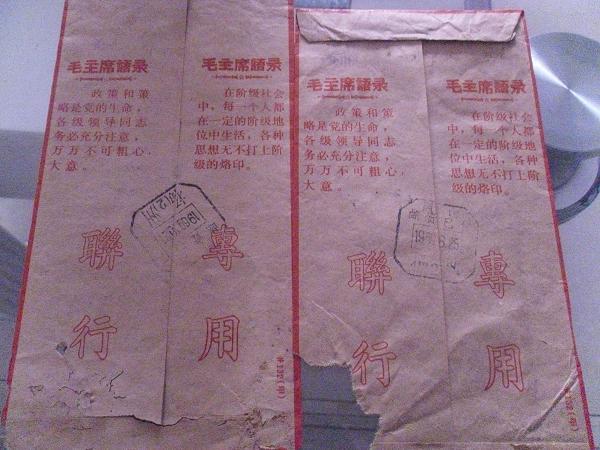 毛主席語录
政策和策
略是党的生命，
各级领导同志
务必充分注意，
万万不可粗心，
大意。
毛主席語录
在阶级社会
中，每一个人都
在一定的阶级地
位中生活，各种
思想无不打上阶
级的烙印。
聯行
專用
毛主席語录
政策和策
略是党的生命，
各级领导同志
务必充分注意，
万万不可粗心，
大意。
毛主席語录
在阶级社会
中，每一个人都
在一定的阶级地
位中生活，各种
思想无不打上阶
级的烙印。
聯行
專用